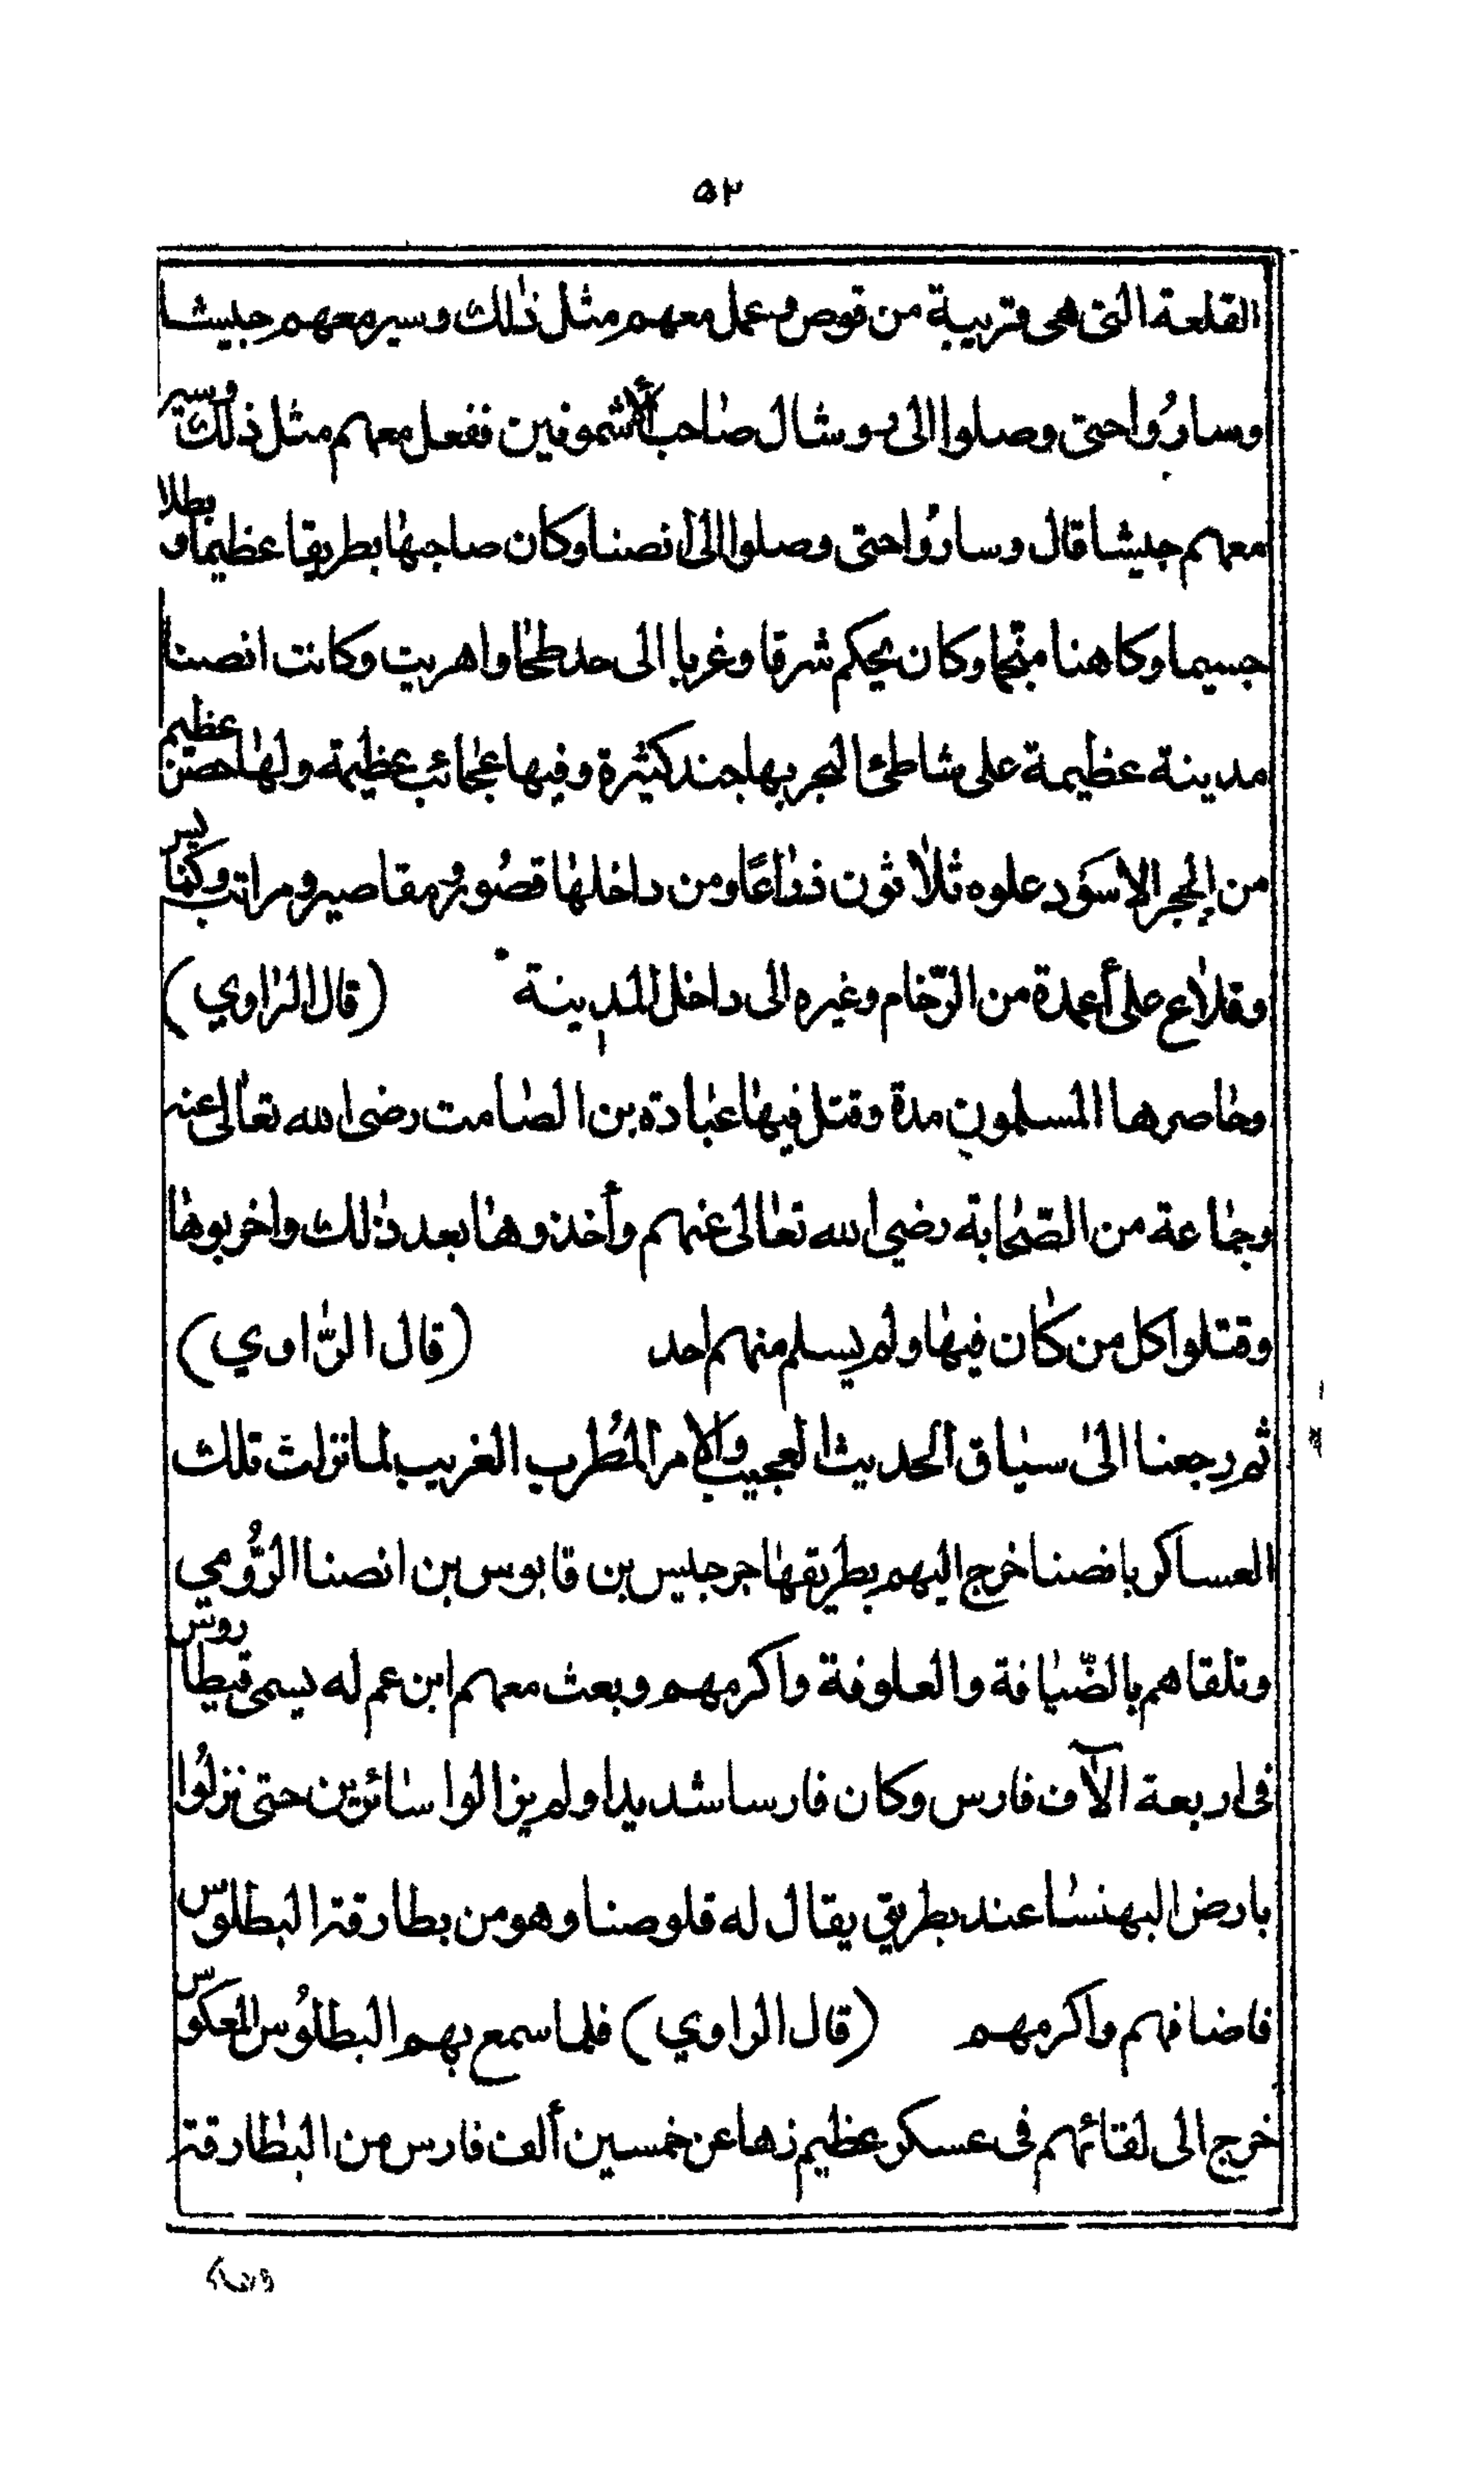 ٥٢
القلعة التى هى قريبة من قوص وعمل معهم مثل ذٰلك وسير معهم جيشا
وسارُوا حتى وصلوا الى بوشال صاحب الأشمونين ففعل معهم مثل ذلك وسير
معهم جيشا قال وسارُوا حتى وصلوا الى انصنا وكان صاحبها بطريقا عظيما وبطلا
جسيما وكاهنا منجّما وكان يحكم شرقا وغربا الى حد طحا واهريت وكانت انصنا
مدينة عظيمة على شاطئ البحر بها جند كثيرة وفيها عجائب عظيمة ولها حصن عظيم
من الحجر الاسوَد علوه ثلاثون ذراعًا ومن داخلها قصُور ومقاصير ومراتب وكنايس
وقلاع على أعمدة من الرّخام وغيره الى داخل المدينة (قال الراوي)
وحاصرها المسلمون مدة وقتل فيها عبادة بن الصامت رضى الله تعالى عنه
وجماعة من الصّحابة رضي الله تعالى عنهم وأخذوها بعد ذٰلك واخربوها
وقتلوا كل من كان فيها ولم يسلم منهم احد (قال الرّاوي)
ثم رجعنا الى سياق الحديث العجيب والامر المُطرب الغريب لما نزلت تلك
العساكر بانصنا خرج اليهم بطريقها جرجيس بن قابوس بن انصنا الرُّومي
وتلقاهم بالضّيافة والعلوفة واكرمهم وبعث معهم ابن عم له يسمى قيطاروس
فى اربعة الآف فارس وكان فارسا شديدا ولم يزالوا سائرين حتى نزلُوا
بارض البهنسا عند بطريق يقال له قلوصنا وهو من بطارقة البطلوس
فاضافهم واكرمهم (قال الراوي) فلما سمع بهم البطلُوس المعكوس
خرج الى لقائهم فى عسكر عظيم زها عن خمسين ألف فارس من البطارقة